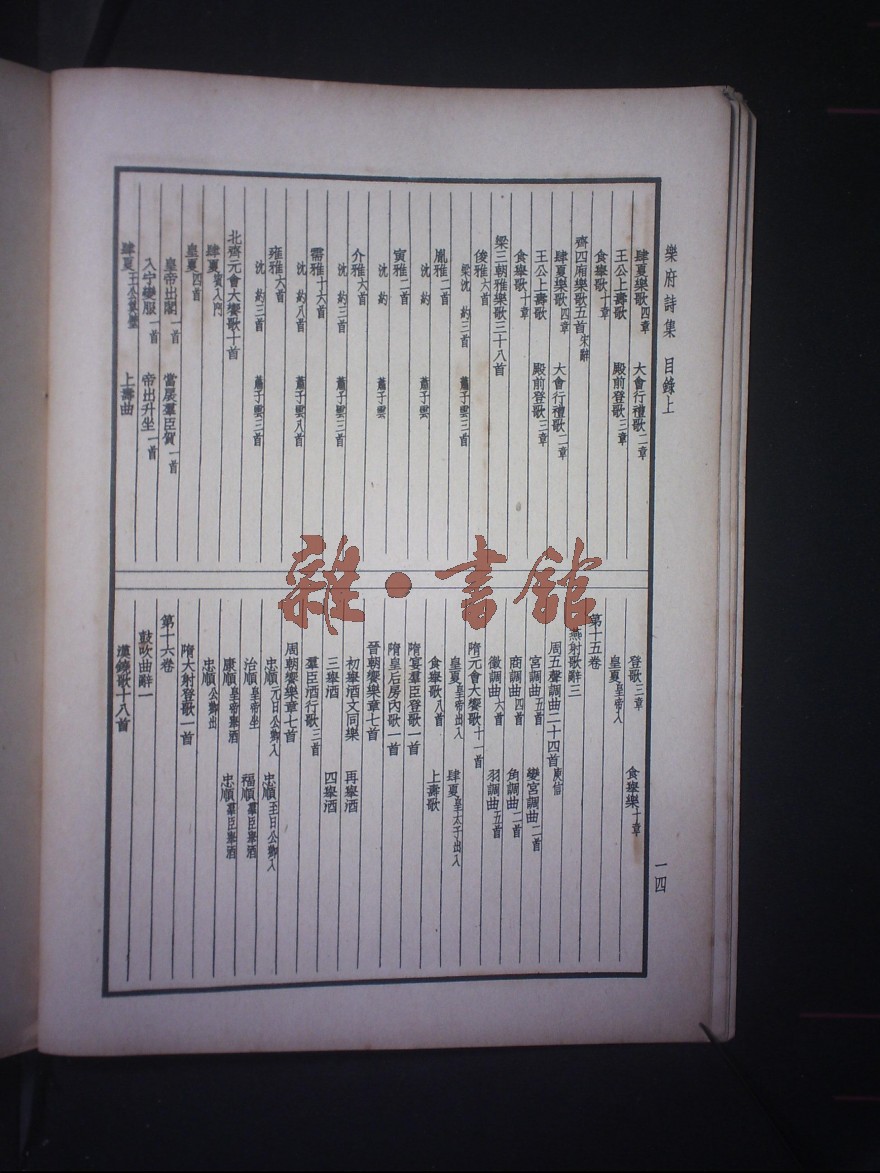 樂府詩集 目錄上
肆夏樂歌四章 大會行禮歌二章
王公上壽歌 殿前登歌三章
食舉歌十章
齊四廂樂歌五首宋辭
肆夏樂歌四章 大會行禮歌二章
王公上壽歌 殿前登歌三章
食舉歌十章
梁三朝雅樂歌三十八首
俊雅六首
梁沈約三首 蕭子雲三首
胤雅二首
沈約 蕭子雲
寅雅二首
沈約 蕭子雲
介雅六首
沈約三首 蕭子雲三首
需雅十六首
沈約八首 蕭子雲八首
雍雅六首
沈約三首 蕭子雲三首
北齊元會大饗歌十首
肆夏賓入門
皇夏四首
皇帝出閤一首 當扆羣臣賀一首
入宁變服一首 帝出升坐一首
肆夏王公奠璧 上壽曲
登歌三章 食舉樂十章
皇夏皇帝入
第十五卷
燕射歌辭三
周五聲調曲二十四首庾信
宮調曲五首 變宮調曲二首
商調曲四首 角調曲二首
徵調曲六首 羽調曲五首
隋元會大饗歌十一首
皇夏皇帝出入 肆夏皇太子出入
食舉歌八首 上壽歌
隋宴羣臣登歌一首
隋皇后房內歌一首
晉朝饗樂章七首
初舉酒文同樂 再舉酒
三舉酒 四舉酒
羣臣酒行歌三首
周朝饗樂章七首
忠順元日公卿入 忠順至日公卿入
治順皇帝坐 福順羣臣舉酒
康順皇帝舉酒 忠順羣臣舉酒
忠順公卿出
隋大射登歌一首
第十六卷
鼓吹曲辭一
漢鐃歌十八首
一四
雜·書館